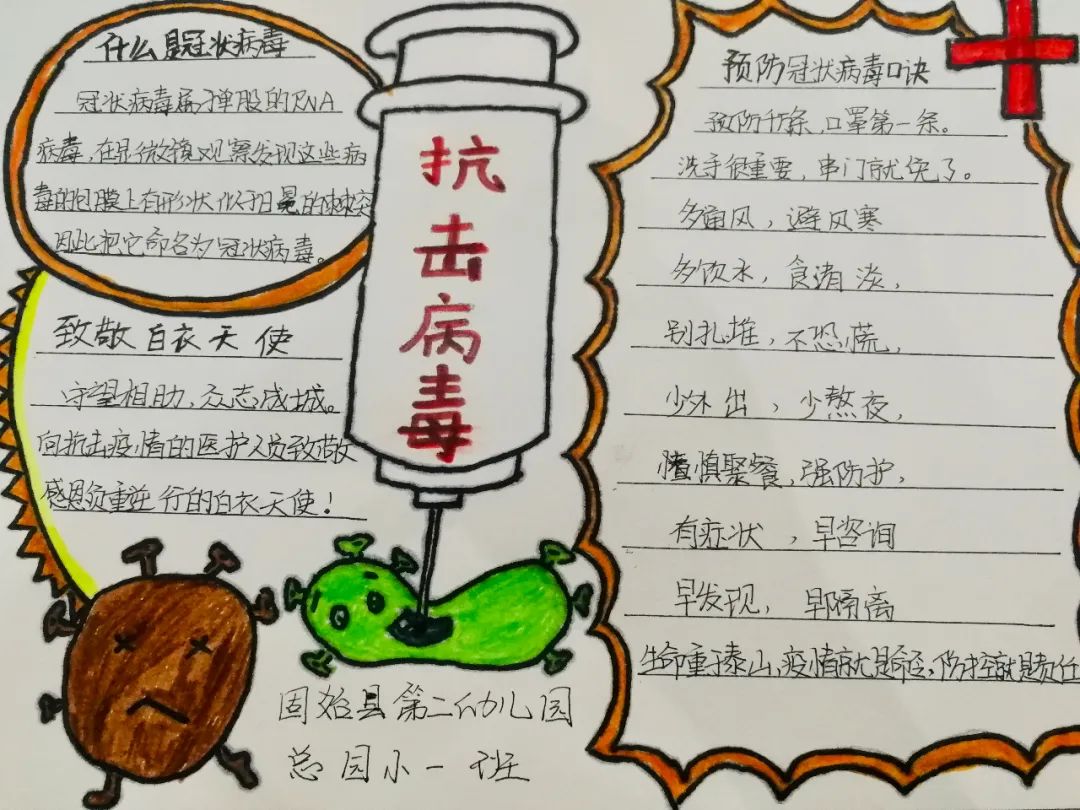 什么是冠状病毒
冠状病毒属于单股的RNA
病毒,在显微镜观察发现这些病
毒的包膜上有形状似于日晃的棘突
因此把它命名为冠状病毒。
致敬白衣天使
守望相助,众志成城。
向抗击疫情的医护人员致敬
感恩负重逆行的白衣天使!
抗
击
病
毒
固始县第二幼儿园
总园小一班
预防冠状病毒口诀
预防千条,口罩第一条。
洗手很重要,串门就免了。
多通风,避风寒
多饮水,食清淡,
别扎堆,不恐慌,
少外出,少熬夜,
慎聚餐,强防护,
有症状,早咨询
早发现,早隔离
生命重于泰山,疫情就是命令,防控就是责任